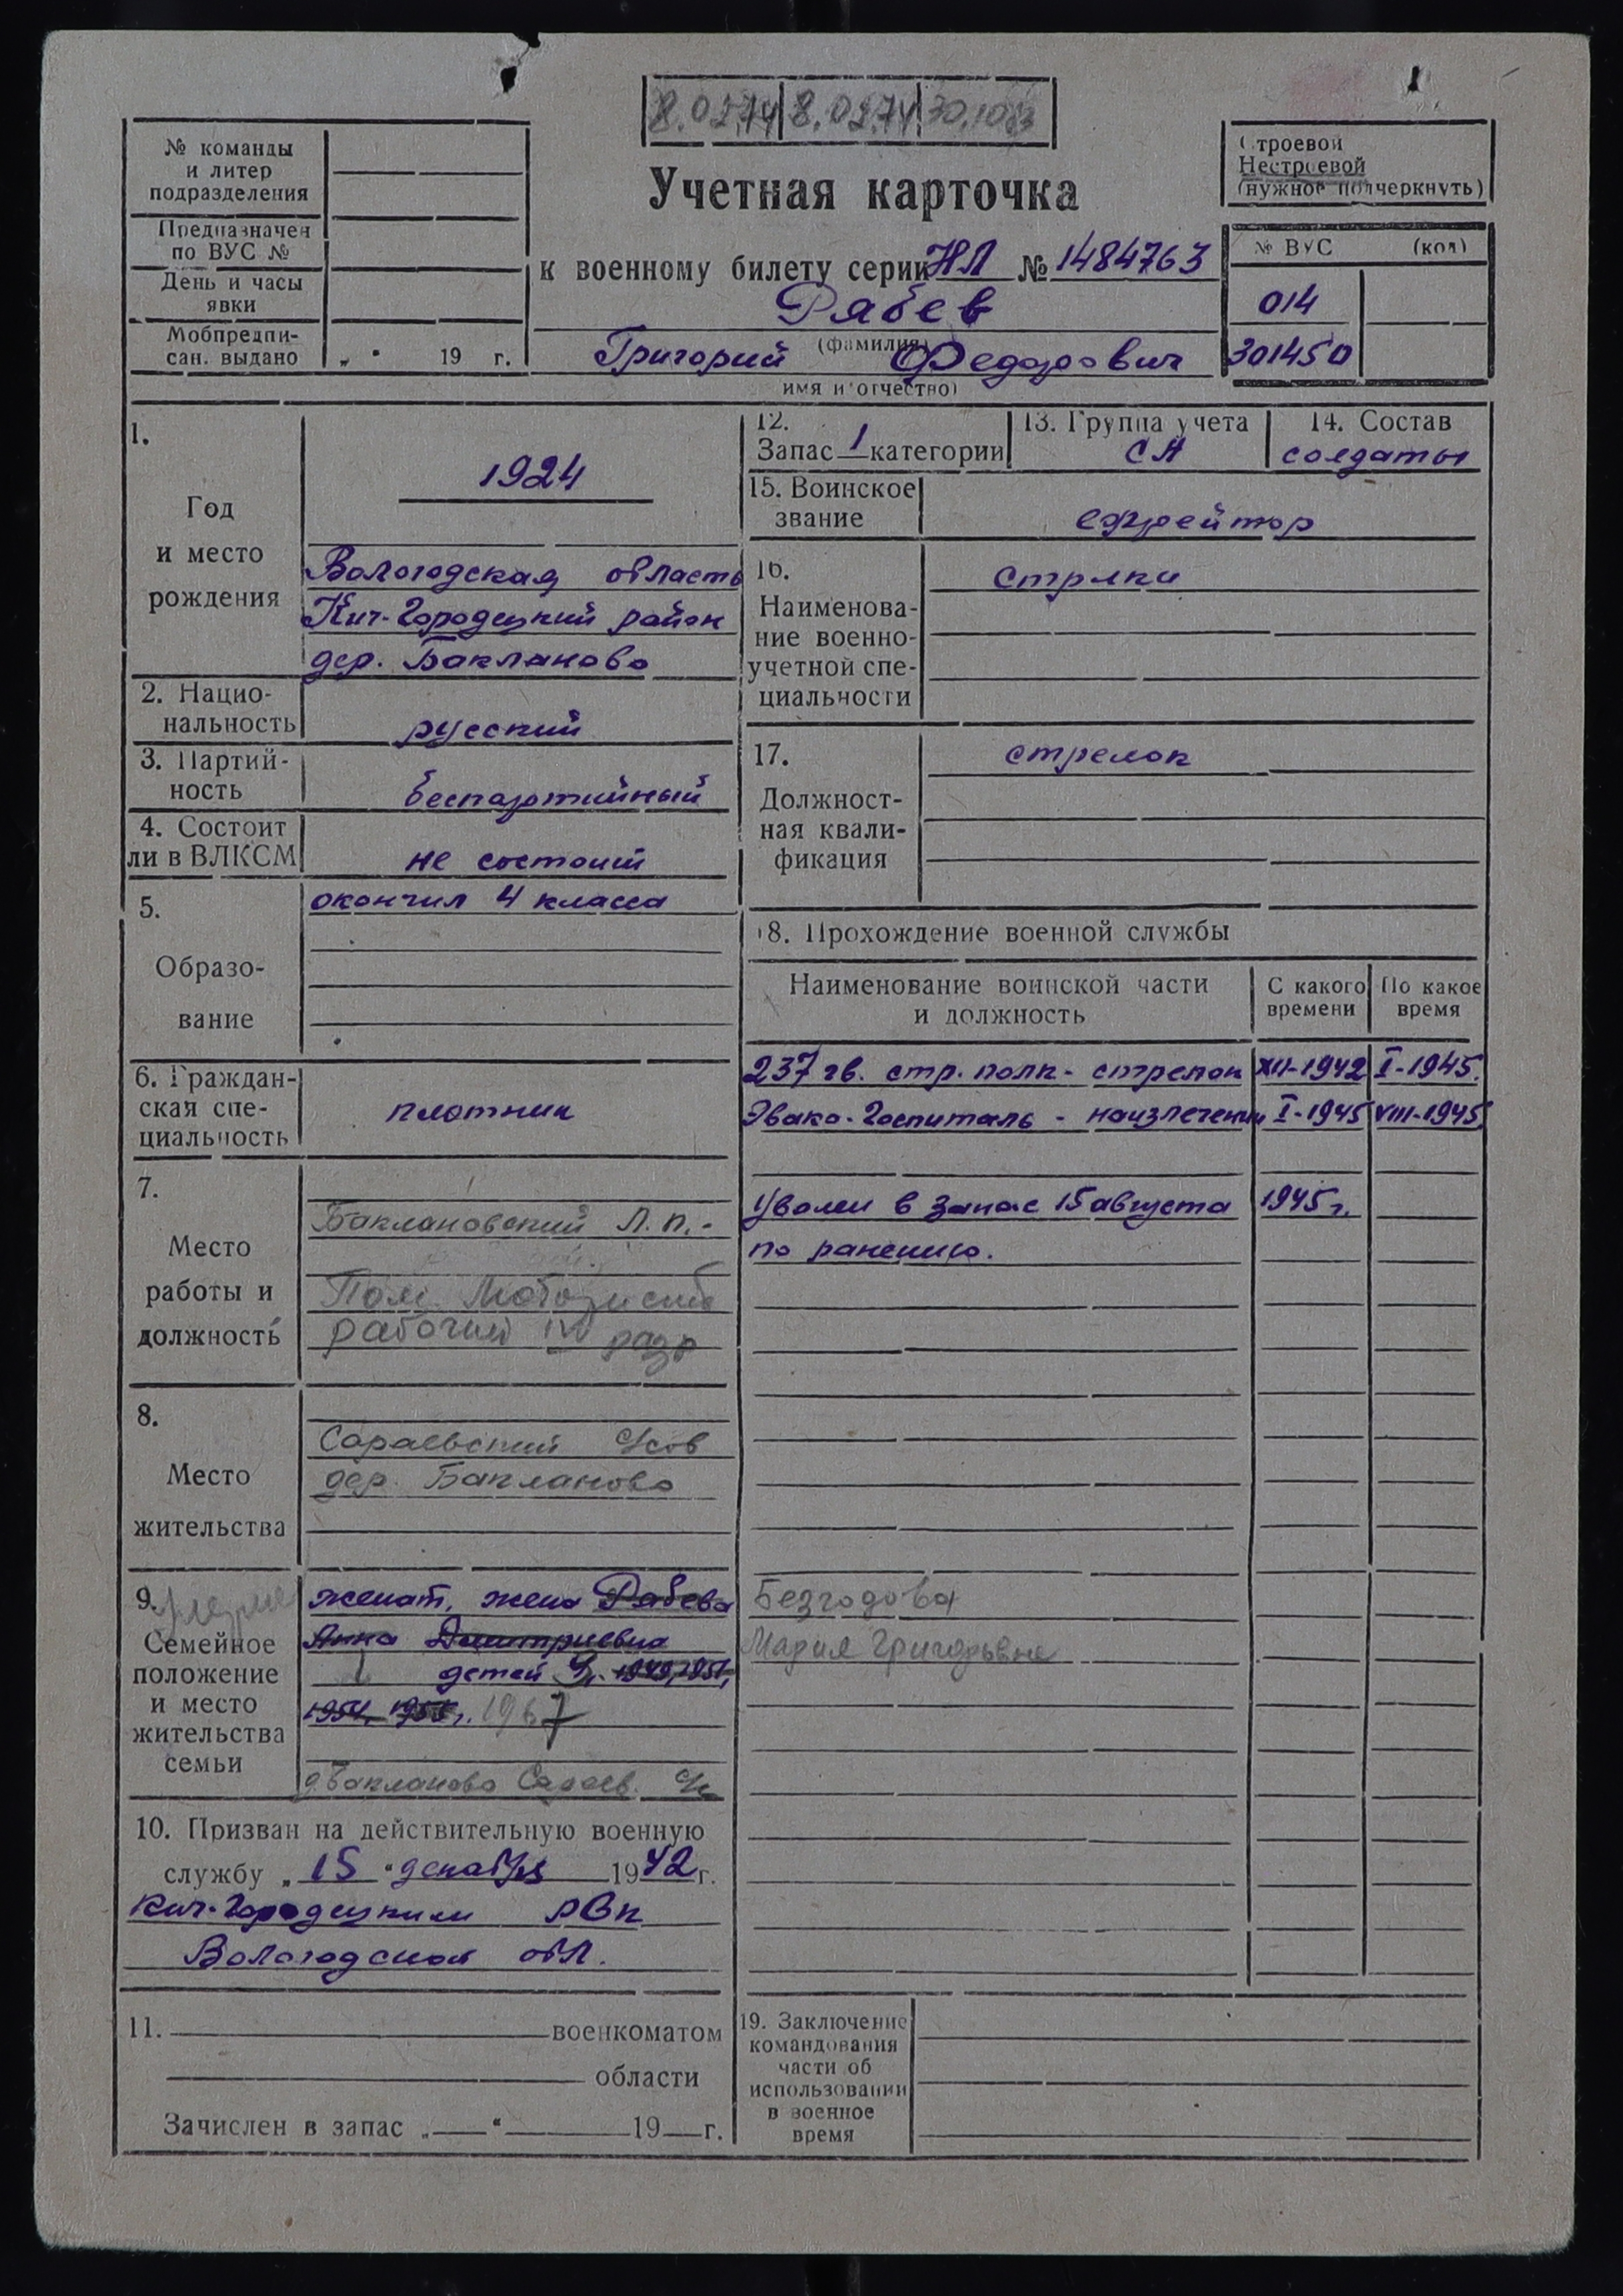 8.02.74 8.02.74 30.10.83
№ команды
и литер
подразделения
Предназначен
по ВУС №
День и часы
явки
Мобпредпи-
сан. выдано „ “ 19 г.
Учетная карточка
к военному билету серии НЛ № 1484763
Рябев
(фамилия)
Григорий Федорович
имя и отчество)
Строевой
Нестроевой
(нужное подчеркнуть)
№ ВУС (код)
014
301450
1.
Год
и место
рождения
1924
Вологодская область
Кич-Городецкий район
дер. Бакланово
2. Нацио-
нальность
русский
3. Партий-
ность
беспартийный
4. Состоит
ли в ВЛКСМ
не состоит
5.
Образо-
вание
окончил 4 класса
6. Граждан-
ская спе-
циальность
плотник
7.
Место
работы и
должность
Баклановский Л.п.-
Пом.
рабочий IV разр
8.
Место
жительства
Сараевский с/сов
дер. Бакланово
9.
Семейное
положение
и место
жительства
семьи
женат, жена Рябева
Анна Дмитриевна
детей 4, 1949, 1951,
1954, г. 1967
д Бакланово Сараев. с/с
10. Призван на действительную военную
службу „ 15 “ декабря 1942 г.
Кич-Городецким РВК
Вологодской обл.
11. военкоматом
области
Зачислен в запас „ “ 19 г.
12.
Запас 1 категории
13. Группа учета
СА
14. Состав
солдаты
15. Воинское
звание
ефрейтор
16.
Наименова-
ние военно-
учетной спе-
циальности
стрлки
17.
Должност-
ная квали-
фикация
стрелок
18. Прохождение военной службы
Наименование воинской части
и должность
С какого
времени
По какое
время
237 гв. стр. полк - стрелок XII-1942 I-1945.
Эвако-Госпиталь - наизлечении I-1945 VIII-1945
Уволен в запас 15 августа 1945 г.
по ранению.
Безгодова
Мария Григорьевна
19. Заключение
командования
части об
использовании
в военное
время